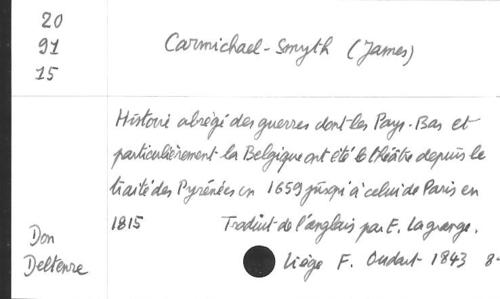 20
91
15
Carmichael-Smyth (James)
Histoire abrégé des guerres dont les Pays-Bas et
particulièrement la Belgique ont été le théâtre depuis le
traité des Pyrénées en 1659 jusqu'à celui de Paris en
1815 Traduit de l'anglais par E. Lagrange.
Liège F. Oudart 1843 8-
Don
Deltenre